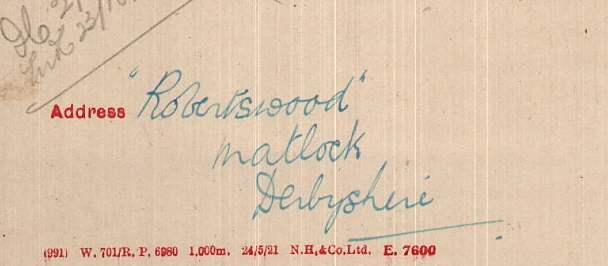 Address "Robertswood"
Matlock
Derbyshire
(991) W. 701/R. P. 6980 1,000m. 24/5/21 N.H,&Co.Ltd. E. 7600